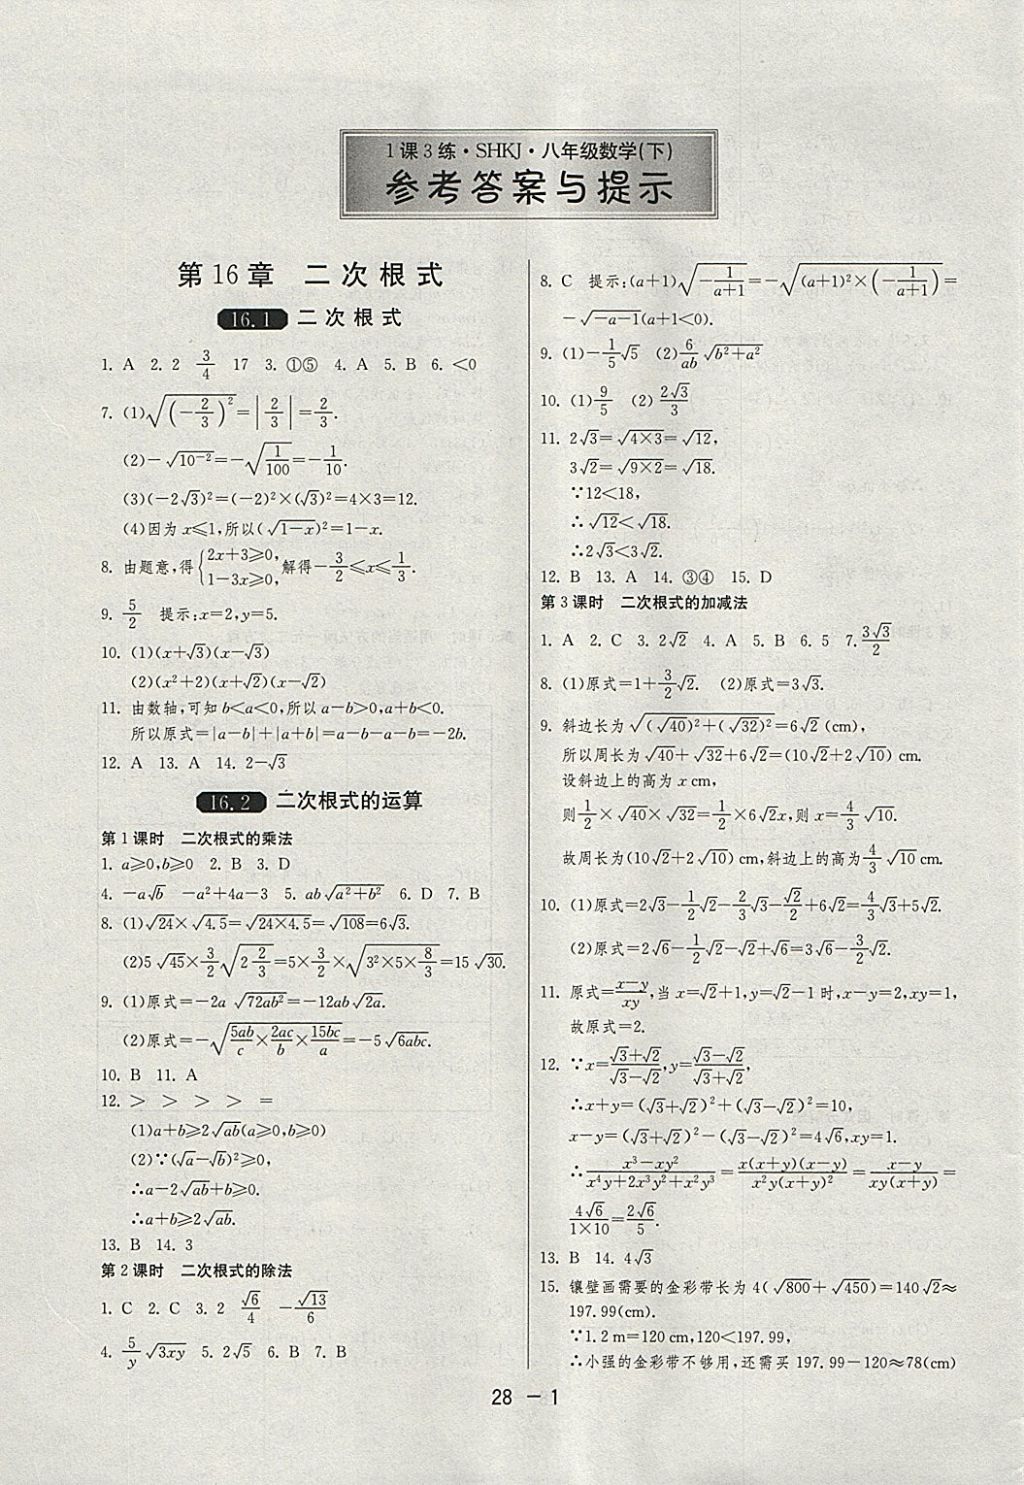 1课3练·SHKJ·八年级数学(下)
参考答案与提示
第16章 二次根式
16.1 二次根式
1. A 2. 2 3/4 17 3. ①⑤ 4. A 5. B 6. <0
7. (1)√((-2/3)²)=|2/3|=2/3.
(2)-√(10⁻²)=-√(1/100)=-1/10.
(3)(-2√3)²=(-2)²×(√3)²=4×3=12.
(4)因为x≤1,所以(√(1-x))²=1-x.
8. 由题意,得{2x+3≥0, 1-3x≥0,解得-3/2≤x≤1/3.
9. 5/2 提示:x=2,y=5.
10. (1)(x+√3)(x-√3)
(2)(x²+2)(x+√2)(x-√2)
11. 由数轴,可知b<a<0,所以a-b>0,a+b<0.
所以原式=|a-b|+|a+b|=a-b-a-b=-2b.
12. A 13. A 14. 2-√3
16.2 二次根式的运算
第1课时 二次根式的乘法
1. a≥0,b≥0 2. B 3. D
4. -a√b -a²+4a-3 5. ab√(a²+b²) 6. D 7. B
8. (1)√24×√4.5=√(24×4.5)=√108=6√3.
(2)5√45×3/2√(2 2/3)=5×3/2×√(3²×5×8/3)=15√30.
9. (1)原式=-2a√(72ab²)=-12ab√(2a).
(2)原式=-√(5ab/c×2ac/b×15bc/a)=-5√(6abc).
10. B 11. A
12. > > > > =
(1)a+b≥2√(ab)(a≥0,b≥0)
(2)∵(√a-√b)²≥0,
∴a-2√(ab)+b≥0.
∴a+b≥2√(ab).
13. B 14. 3
第2课时 二次根式的除法
1. C 2. C 3. 2 √6/4 -√13/6
4. 5/y√(3xy) 5. 2√5 6. B 7. B
8. C 提示:(a+1)√(-1/(a+1))=-√((a+1)²×(-1/(a+1)))=
-√(-a-1)(a+1<0).
9. (1)-1/5√5 (2)6/ab√(b²+a²)
10. (1)9/5 (2)2√3/3
11. 2√3=√(4×3)=√12,
3√2=√(9×2)=√18.
∵12<18,
∴√12<√18.
∴2√3<3√2.
12. B 13. A 14. ③④ 15. D
第3课时 二次根式的加减法
1. A 2. C 3. 2√2 4. A 5. B 6. 5 7. 3√3/2
8. (1)原式=1+3/2√2. (2)原式=3√3.
9. 斜边长为√((√40)²+(√32)²)=6√2(cm),
所以周长为√40+√32+6√2=(10√2+2√10) cm.
设斜边上的高为x cm,
则1/2×√40×√32=1/2×6√2x,则x=4/3√10.
故周长为(10√2+2√10) cm,斜边上的高为4/3√10 cm.
10. (1)原式=2√3-1/2√2-2/3√3-√2/2+6√2=4/3√3+5√2.
(2)原式=2√6-1/2√2-√2+√6=3√6-3/2√2.
11. 原式=(x-y)/xy,当x=√2+1,y=√2-1时,x-y=2,xy=1,
故原式=2.
12. ∵x=(√3+√2)/(√3-√2),y=(√3-√2)/(√3+√2),
∴x+y=(√3+√2)²+(√3-√2)²=10,
x-y=(√3+√2)²-(√3-√2)²=4√6,xy=1.
∴(x³-xy²)/(x⁴y+2x³y²+x²y³)=x(x+y)(x-y)/(x²y(x+y)²)=(x-y)/(xy(x+y))=
4√6/(1×10)=2√6/5.
13. B 14. 4√3
15. 镶壁画需要的金彩带长为4(√800+√450)=140√2≈
197.99(cm).
∵1.2 m=120 cm,120<197.99,
∴小强的金彩带不够用,还需买197.99-120≈78(cm)
28 - 1